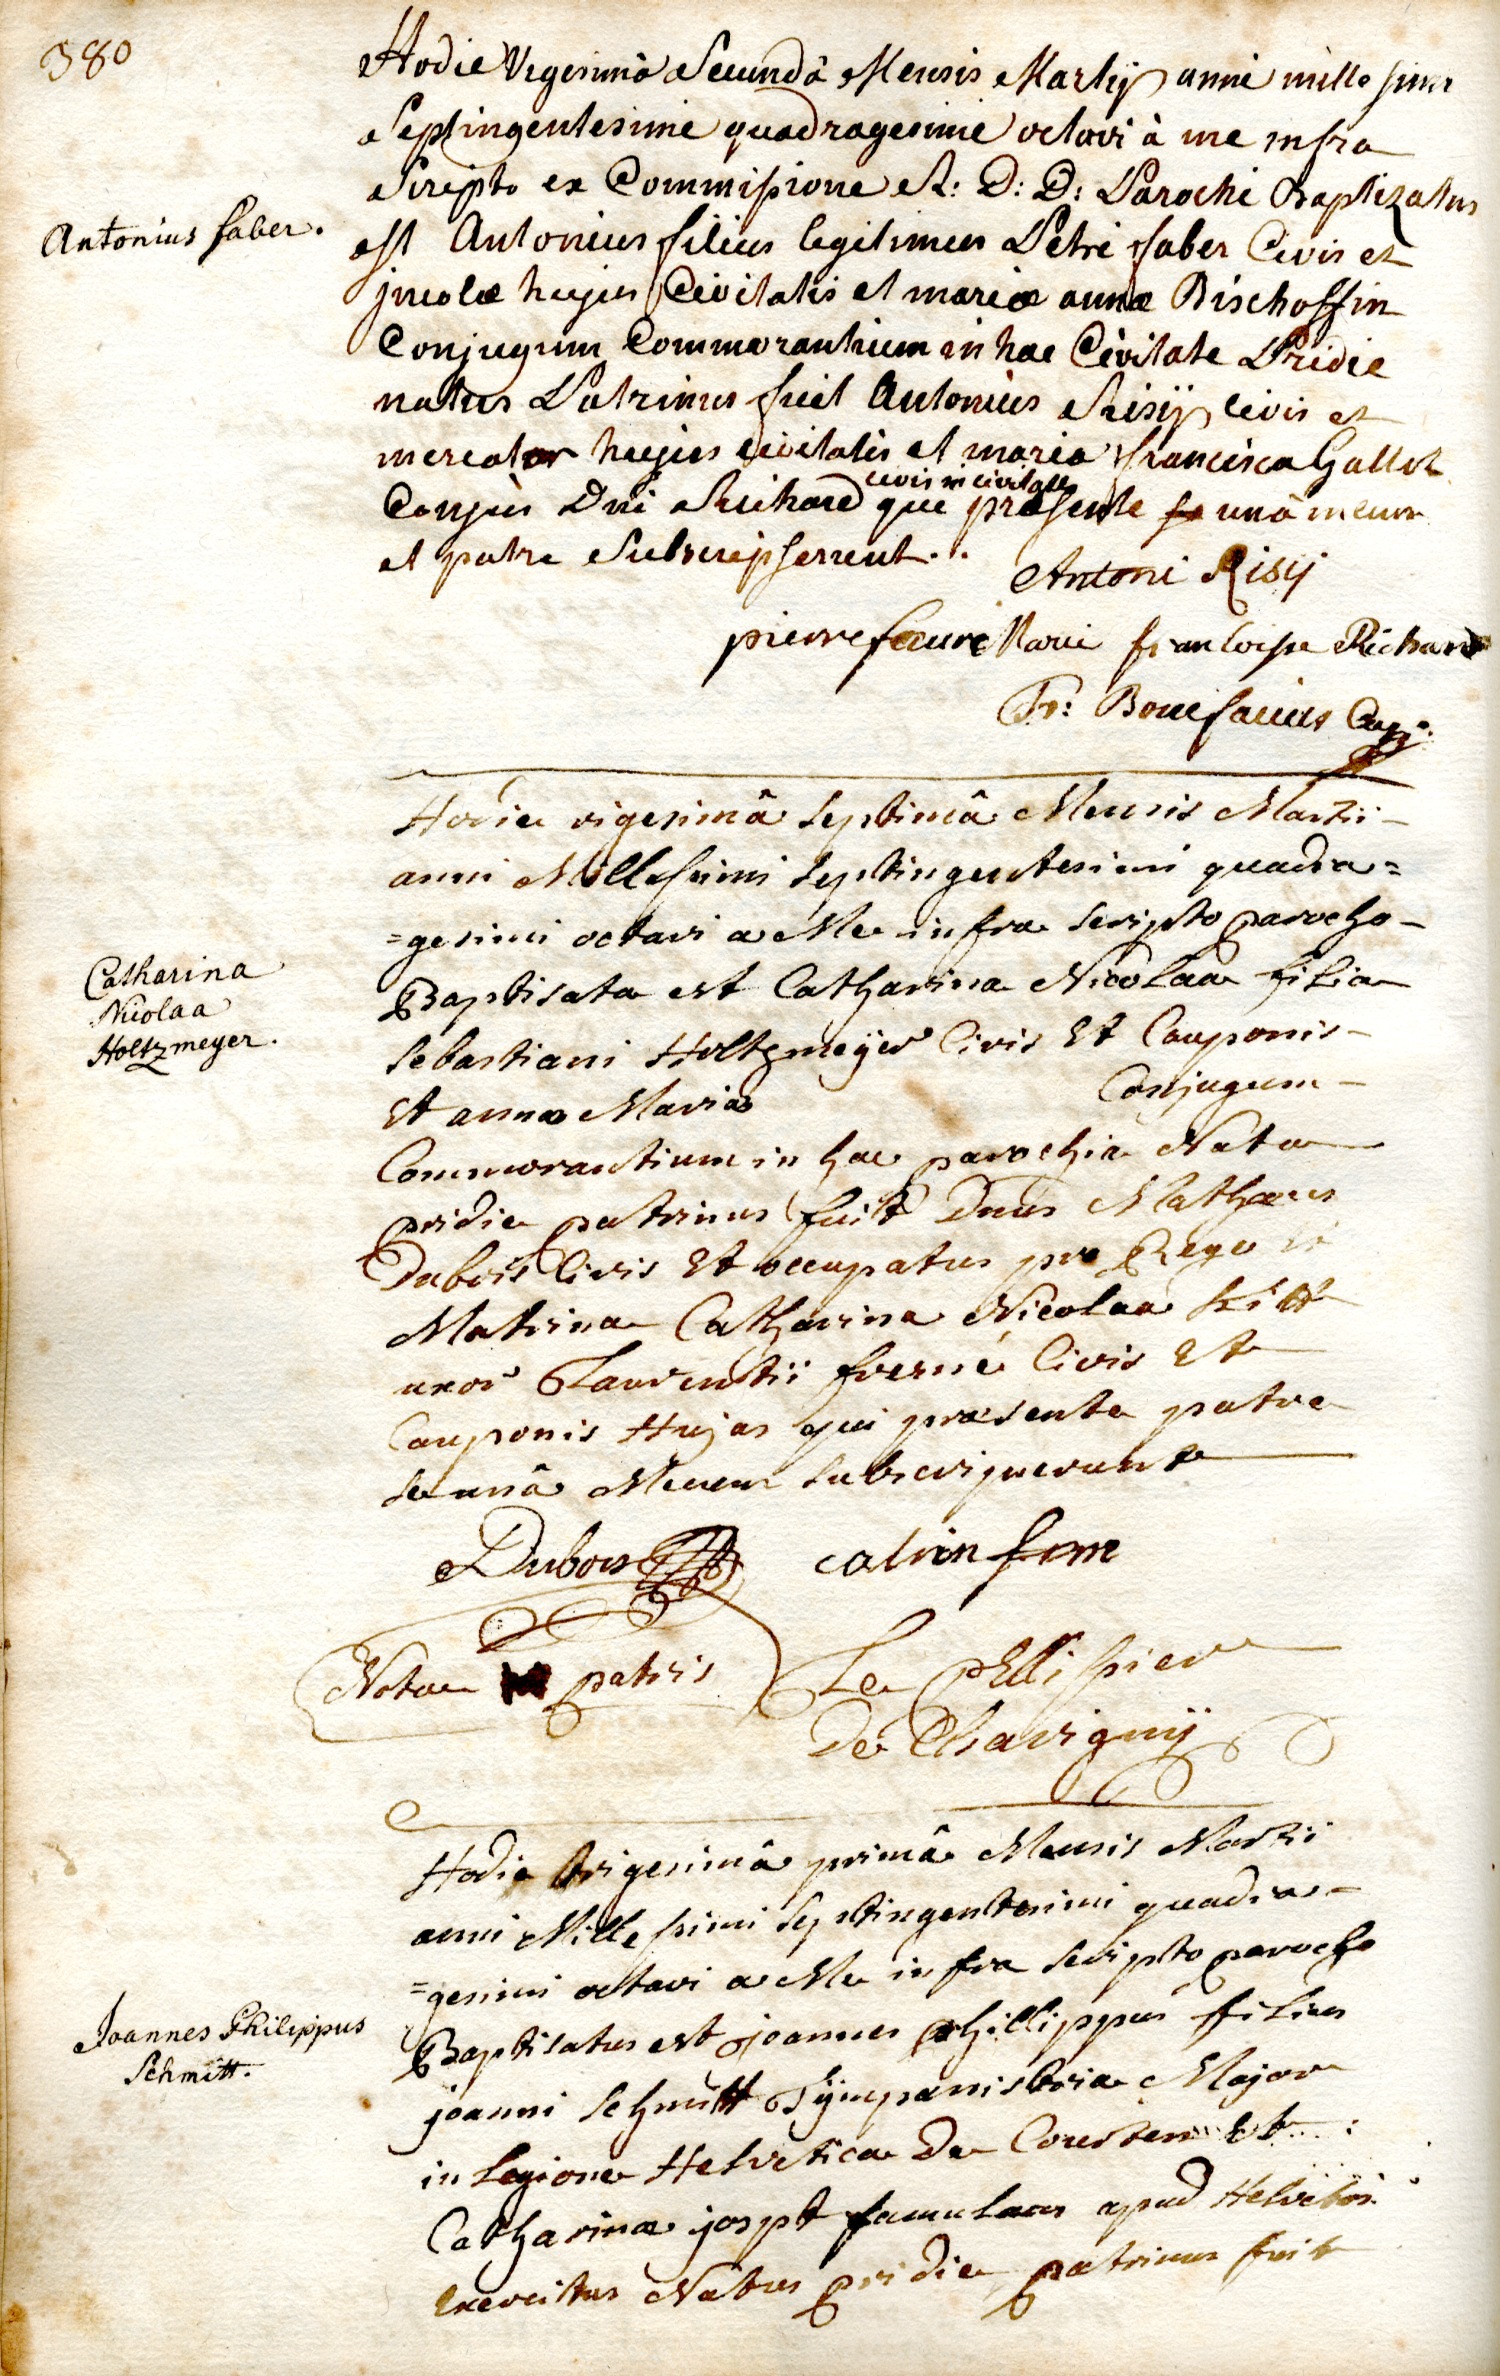 380
Hodie Vigesimâ Secundâ Mensis Martij anni mille simi
Septingentesimi quadragesimi octavi à me infra
Scripto ex Commissione R: D: D: Parochi Baptizatus
Antonius faber.
est Antonius filius legitimus Petri faber Civis et
jncolæ hujus Civitatis et mariæ annæ Bischoffin
Conjugum Commorantium in hac Civitate Pridie
natus Patrinus fuit Antonius Risij civis et
mercator hujus civitatis et maria francisca Gallet
civis in civitate
Conjux Dni Richard que præsente unà mecum
et patre Subscripserunt..
Antoni Risij
pierre faure Marie francoise Richard
Fr: Bonifacius Capp:
Hodie vigesimâ septimâ Mensis Martii
anni Millesimi septingentesimi quadra=
=gesimi octavi a Me infra scripto parocho
Catharina
Nicolaa
Holtzmeyer.
Baptisata est Catharina Nicolaa filia
sebastiani Holtzmeÿer Civis Et Cauponis
Et annæ Mariæ Conjugum
Commorantium in hac parochia Nata
pridie patrinus fuit Dnus Mathæus
Dubois Civis Et occupatus pro Rege
Matrina Catharina Nicolaa Kitt
uxor Laurentii fresne Civis Et
Cauponis Hujas qui præsente patre
se unâ Mecum subscripserunt
Dubois catrin
Nota patris Le Pellissier
De Chavignÿ
Hodie trigesimâ primâ Mensis Martii
anni Millesimi septingentesimi quadra-
=gesimi octavi a Me infra scripto parocho
Joannes Philippus
Schmitt.
Baptisatus est joannes phillippus filius
joanni schmitt Tÿmpanistria Major
in Legione Helvetica De Courten Et
Catharinæ jospt famulæus apud Helvetios
Exercitus Natus pridie patrinus fuit